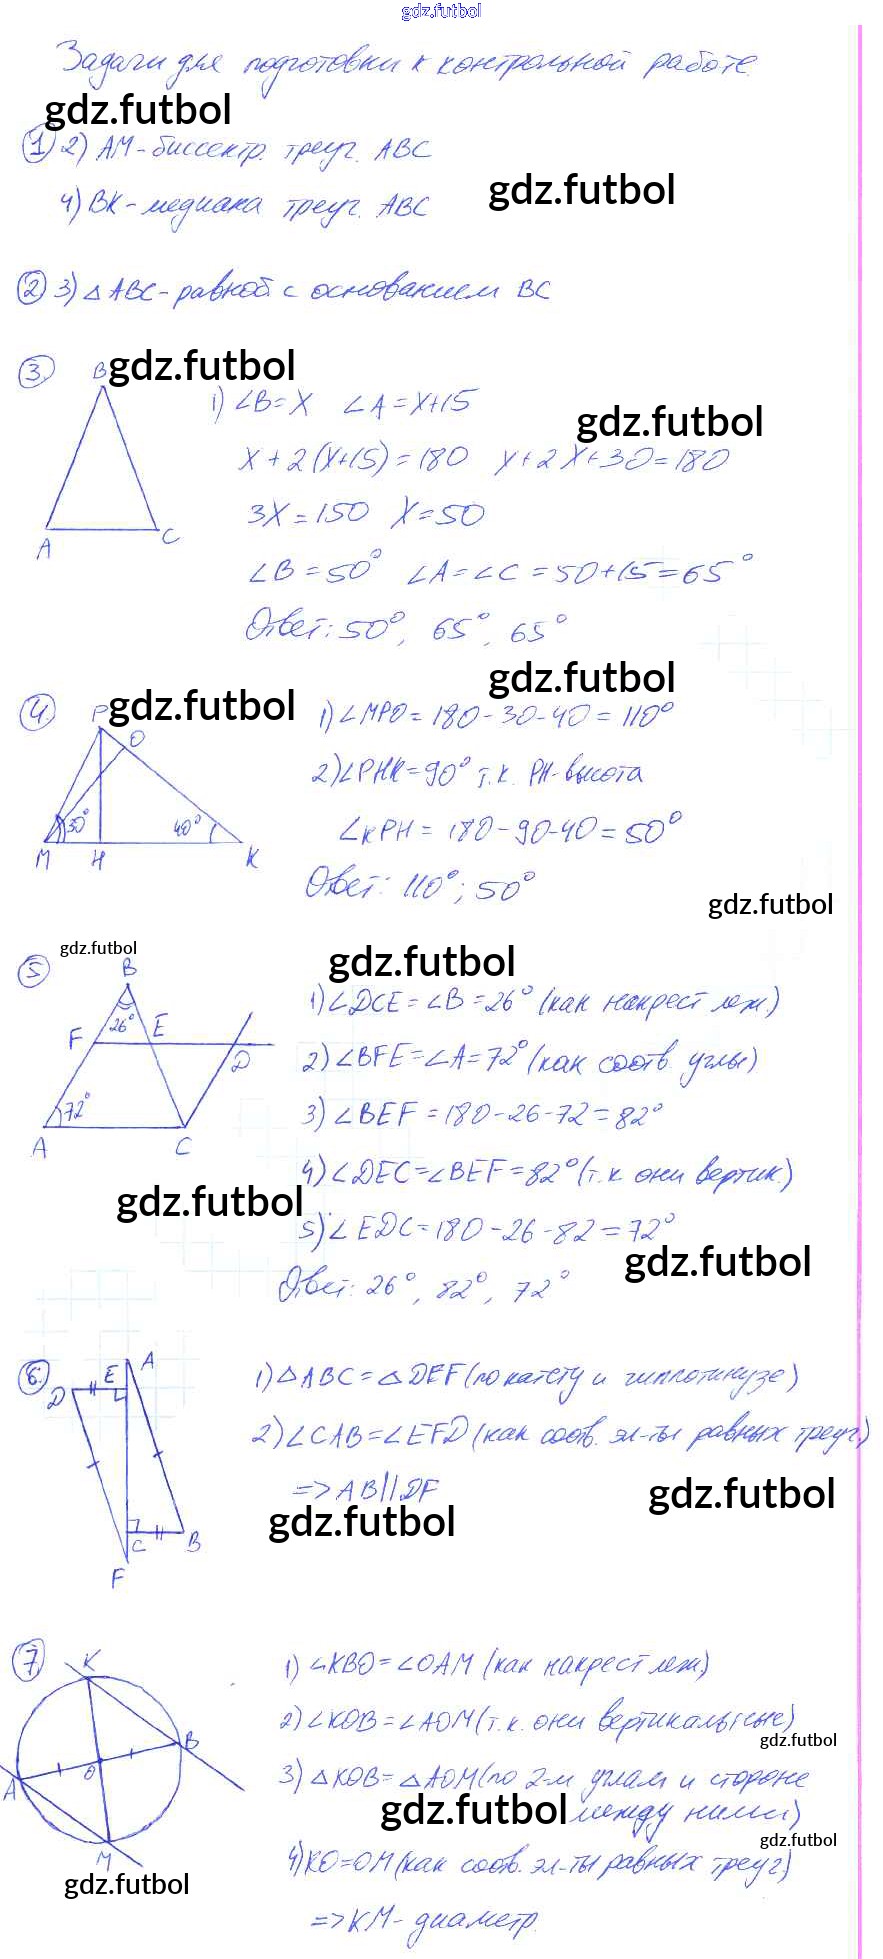 gdz.futbol
Задачи для подготовки к контрольной работе.
gdz.futbol
1 2) AM-биссектр. треуг. ABC
gdz.futbol
4) BK-медиана треуг. ABC
2 3) △ABC-равноб. с основанием BC
3. B gdz.futbol
1) ∠B=x ∠A=x+15
gdz.futbol
x+2(x+15)=180 x+2x+30=180
3x=150 x=50
A C
∠B=50° ∠A=∠C=50+15=65°
Ответ: 50°, 65°, 65°
gdz.futbol
4. P gdz.futbol 1) ∠MPO=180-30-40=110°
O
2) ∠PHK=90° т.к. PH-высота
30° 40°
∠KPH=180-90-40=50°
M H K
Ответ: 110°; 50°
gdz.futbol
gdz.futbol
5 B gdz.futbol
1) ∠DCE=∠B=26° (как накрест леж.)
26° E F D
2) ∠BFE=∠A=72° (как соотв. углы)
72°
3) ∠BEF=180-26-72=82°
A C
4) ∠DEC=∠BEF=82° (т.к они вертик.)
gdz.futbol
5) ∠EDC=180-26-82=72°
gdz.futbol
Ответ: 26°, 82°, 72°
6. D E A 1) △ABC=△DEF (по катету и гиппотинузе)
2) ∠CAB=∠EFD (как соотв. эл-ты равных треуг.)
=> AB||DF
gdz.futbol
gdz.futbol
C B
F
7. K 1) ∠KBO=∠OAM (как накрест леж.)
2) ∠KOB=∠AOM (т.к. они вертикальные)
gdz.futbol
A O B
3) △KOB=△AOM (по 2-м углам и стороне
gdz.futbol между ними)
gdz.futbol
M
4) KO=OM (как соотв. эл-ты равных треуг.)
gdz.futbol
=> KM-диаметр.